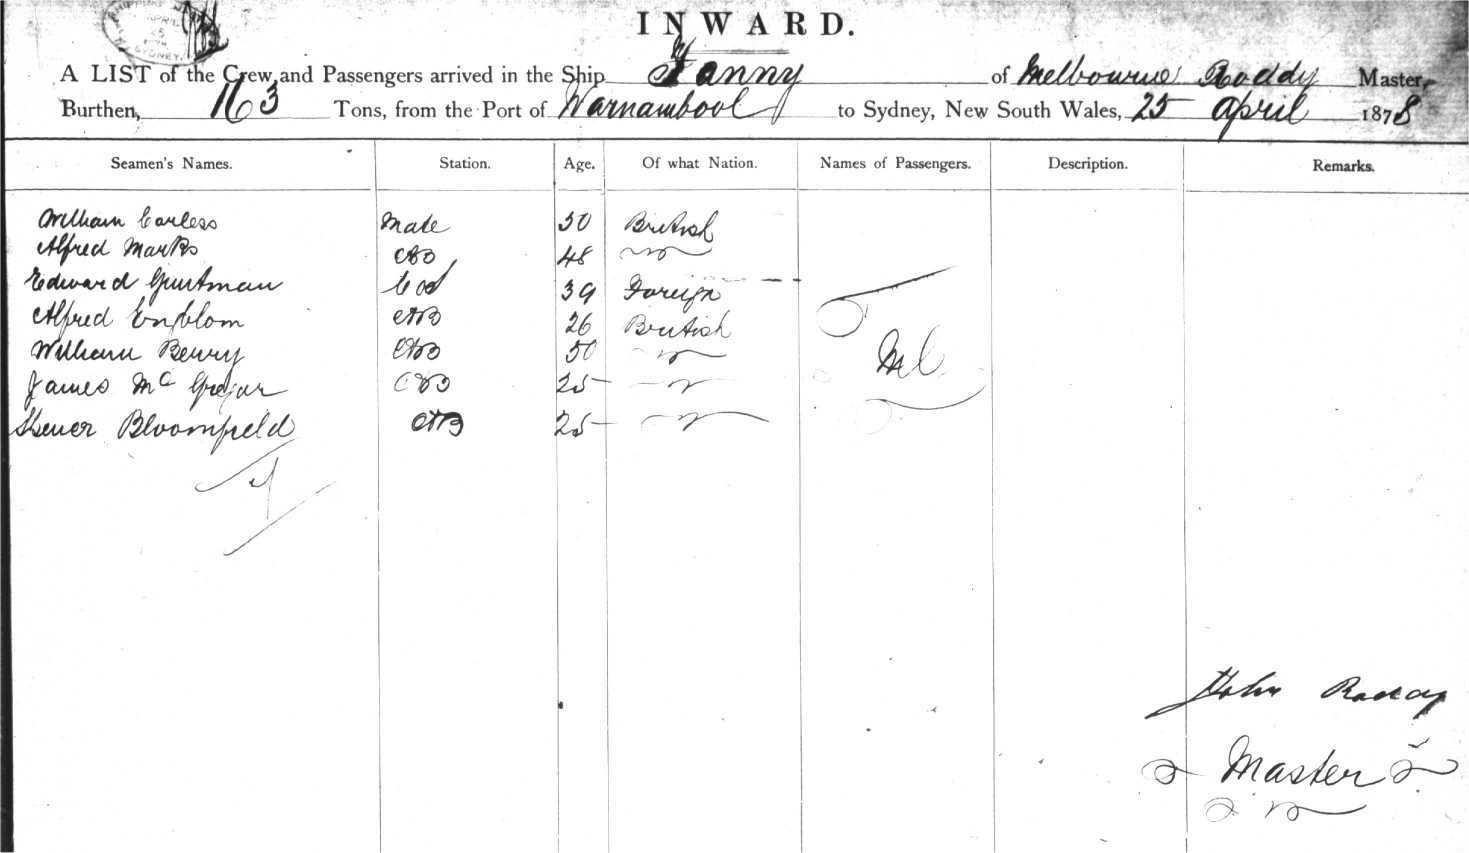 INWARD.
A LIST of the Crew and Passengers arrived in the Ship Fanny of Melbourne Roddy Master,
Burthen, 163 Tons, from the Port of Warnambool to Sydney, New South Wales, 25 April 1878
Seamen's Names. Station. Age. Of what Nation. Names of Passengers. Description. Remarks.
William Carless Mate 30 British
Alfred Marks AB 48 "
Edward 39 Foreign
Alfred Engblom AB 26 British
William Berry AB 50 "
James Mc Gregor AB 25 "
Bloomfield AB 25 "
John Roddy
Master